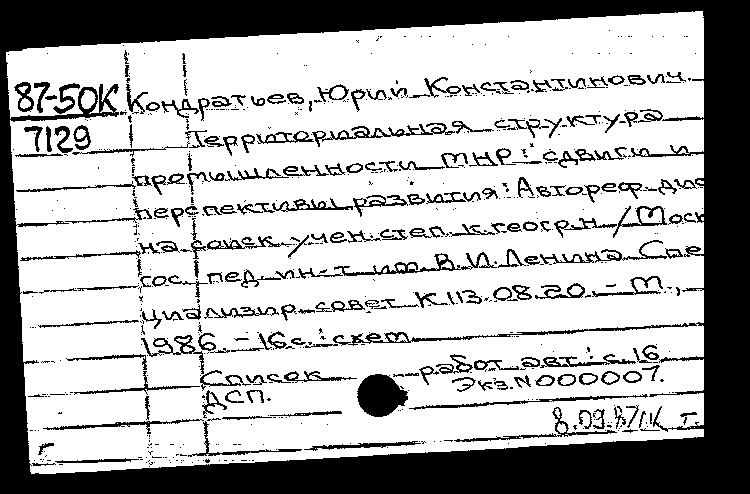 87-50К Кондратьев, Юрий Константинович.
7129 Территориальная структура
промышленности МНР: сдвиги и
перспективы развития: Автореф. дис
на соиск. учен. степ. к. геогр. н / Моск
гос. пед. ин-т им. В. И. Ленина Спе
циализир. совет К 113.08.20. - М.,
1986. - 16с.: схем
Список работ авт.: с. 16
ДСП. Экз. N 000007.
8.09.87 г.
г